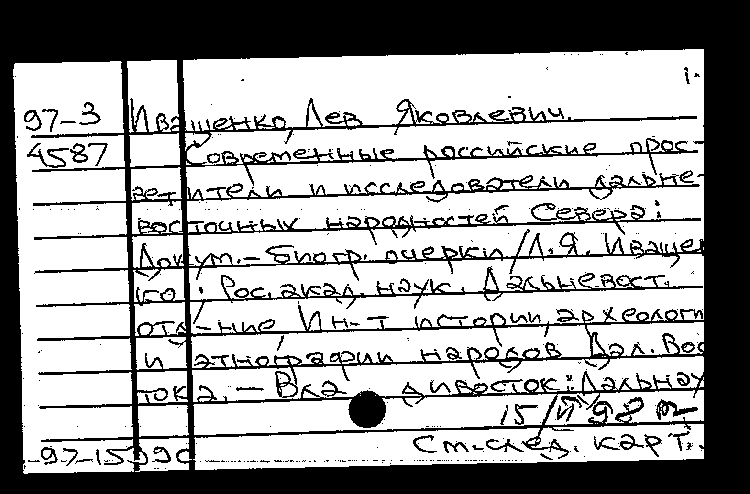 1.
97-3 Иващенко, Лев Яковлевич.
4587 Современные российские прос-
ветители и исследователи дальне-
восточных народностей Севера:
Докум.-биогр. очерки / Л.Я. Иващен
ко; Рос. акад. наук. Дальневост.
отд-ние, Ин-т истории, археологи
и этнографии народов Дал. Вос
тока. — Вла дивосток: Дальнау
15/ 98
97-15 См. след. карт.